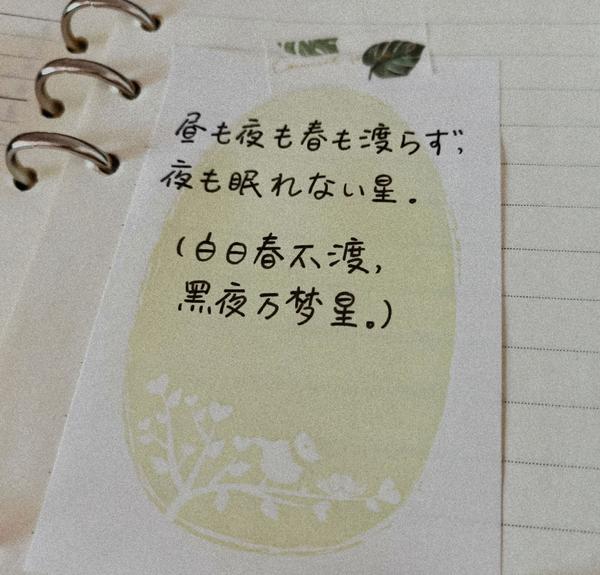 昼も夜も春も渡らず,
夜も眠れない星.
(白日春不渡,
黑夜万梦星。)